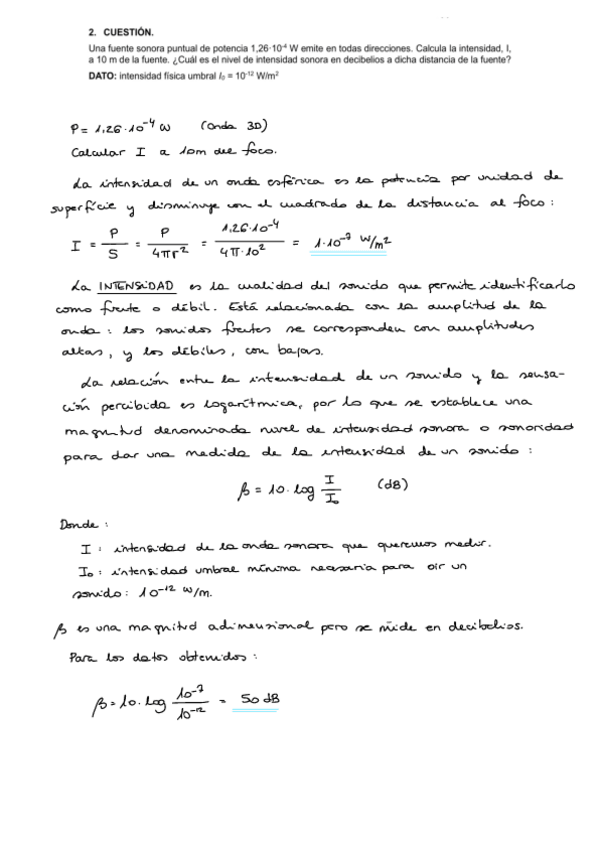 2. CUESTIÓN.
Una fuente sonora puntual de potencia 1,26·10⁻⁴ W emite en todas direcciones. Calcula la intensidad, I,
a 10 m de la fuente. ¿Cuál es el nivel de intensidad sonora en decibelios a dicha distancia de la fuente?
DATO: intensidad física umbral I₀ = 10⁻¹² W/m²
P = 1,26·10⁻⁴ W (Onda 3D)
Calcular I a 10m del foco.
La intensidad de un onda esférica es la potencia por unidad de
superficie y disminuye con el cuadrado de la distancia al foco:
I = P/S = P/4πr² = 1,26·10⁻⁴/4π·10² = 1·10⁻⁷ W/m²
La INTENSIDAD es la cualidad del sonido que permite identificarlo
como fuerte o débil. Está relacionada con la amplitud de la
onda: los sonidos fuertes se corresponden con amplitudes
altas, y los débiles, con bajas.
La relación entre la intensidad de un sonido y la sensa-
ción percibida es logarítmica, por lo que se establece una
magnitud denominada nivel de intensidad sonora o sonoridad
para dar una medida de la intensidad de un sonido:
β = 10·log I/I₀ (dB)
Donde:
I: intensidad de la onda sonora que queremos medir.
I₀: intensidad umbral mínima necesaria para oir un
sonido: 10⁻¹² W/m.
β es una magnitud adimensional pero se mide en decibelios.
Para los datos obtenidos:
β = 10·log 10⁻⁷/10⁻¹² = 50 dB